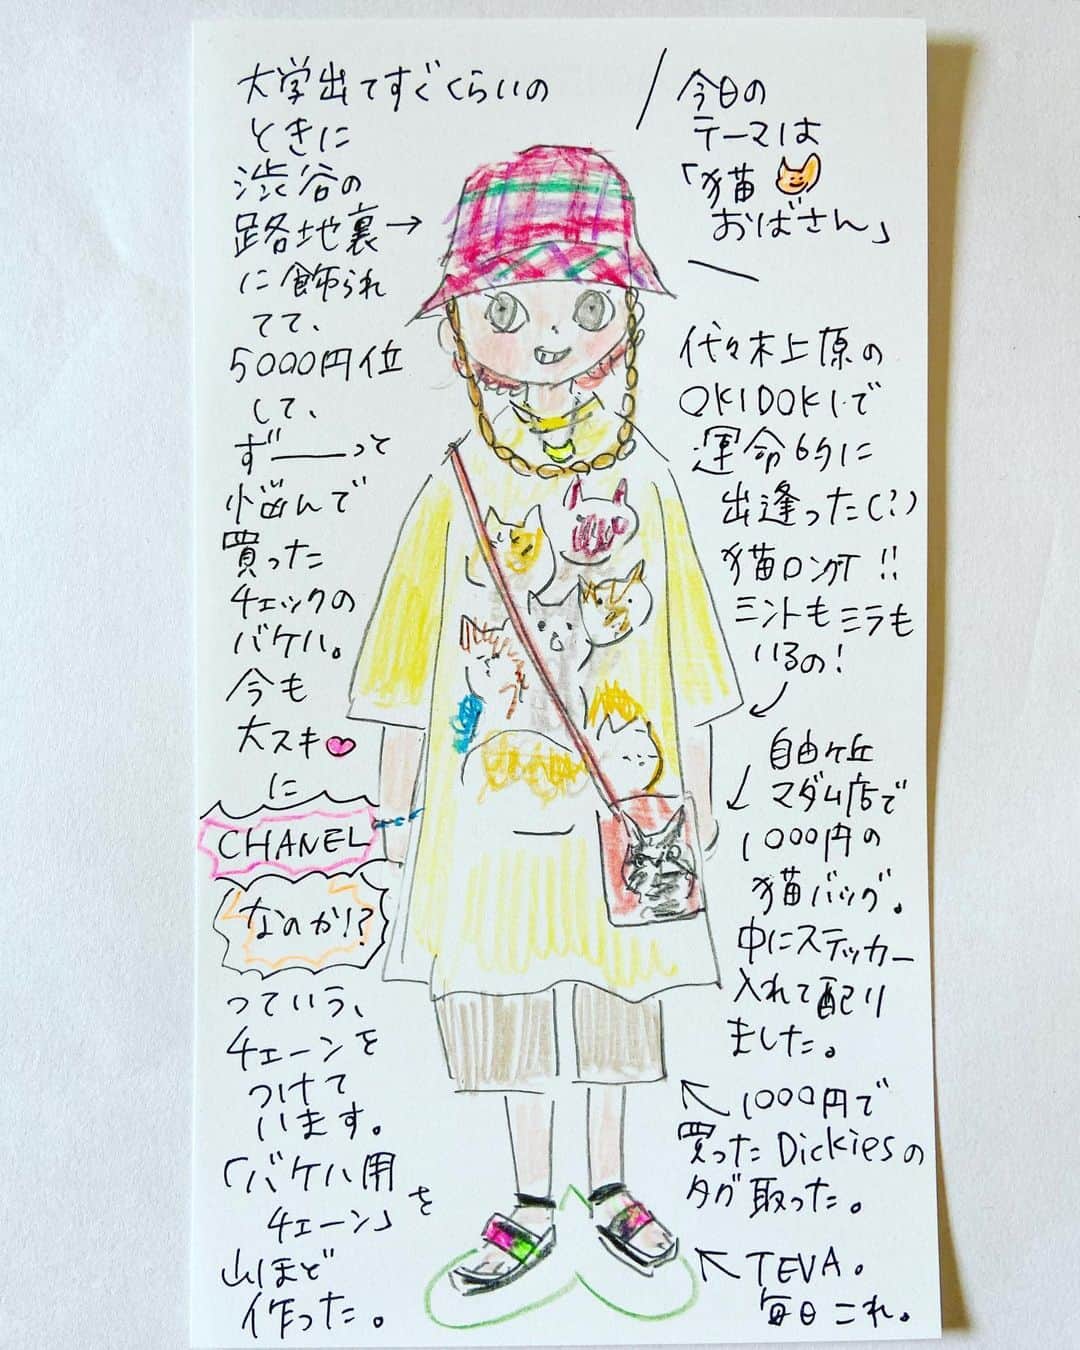 大学出てすぐくらいの
ときに
渋谷の
路地裏→
に飾られ
てて、
5000円位
して、
ずーーっと
悩んで
買った
チェックの
バケハ。
今も
大スキ
に
CHANEL
なのか!?
っていう、
チェーンを
つけて
います。
「バケハ用
チェーン」を
山ほど
作った。
今日の
テーマは
「猫
おばさん」
代々木上原の
OKIDOKIで
運命的に
出逢った(?)
猫ロンT!!
ミントもミラも
いるの!
自由ヶ丘
マダム店で
1000円の
猫バッグ。
中にステッカー
入れて配り
ました。
1000円で
買ったDickiesの
タグ取った。
TEVA。
毎日これ。